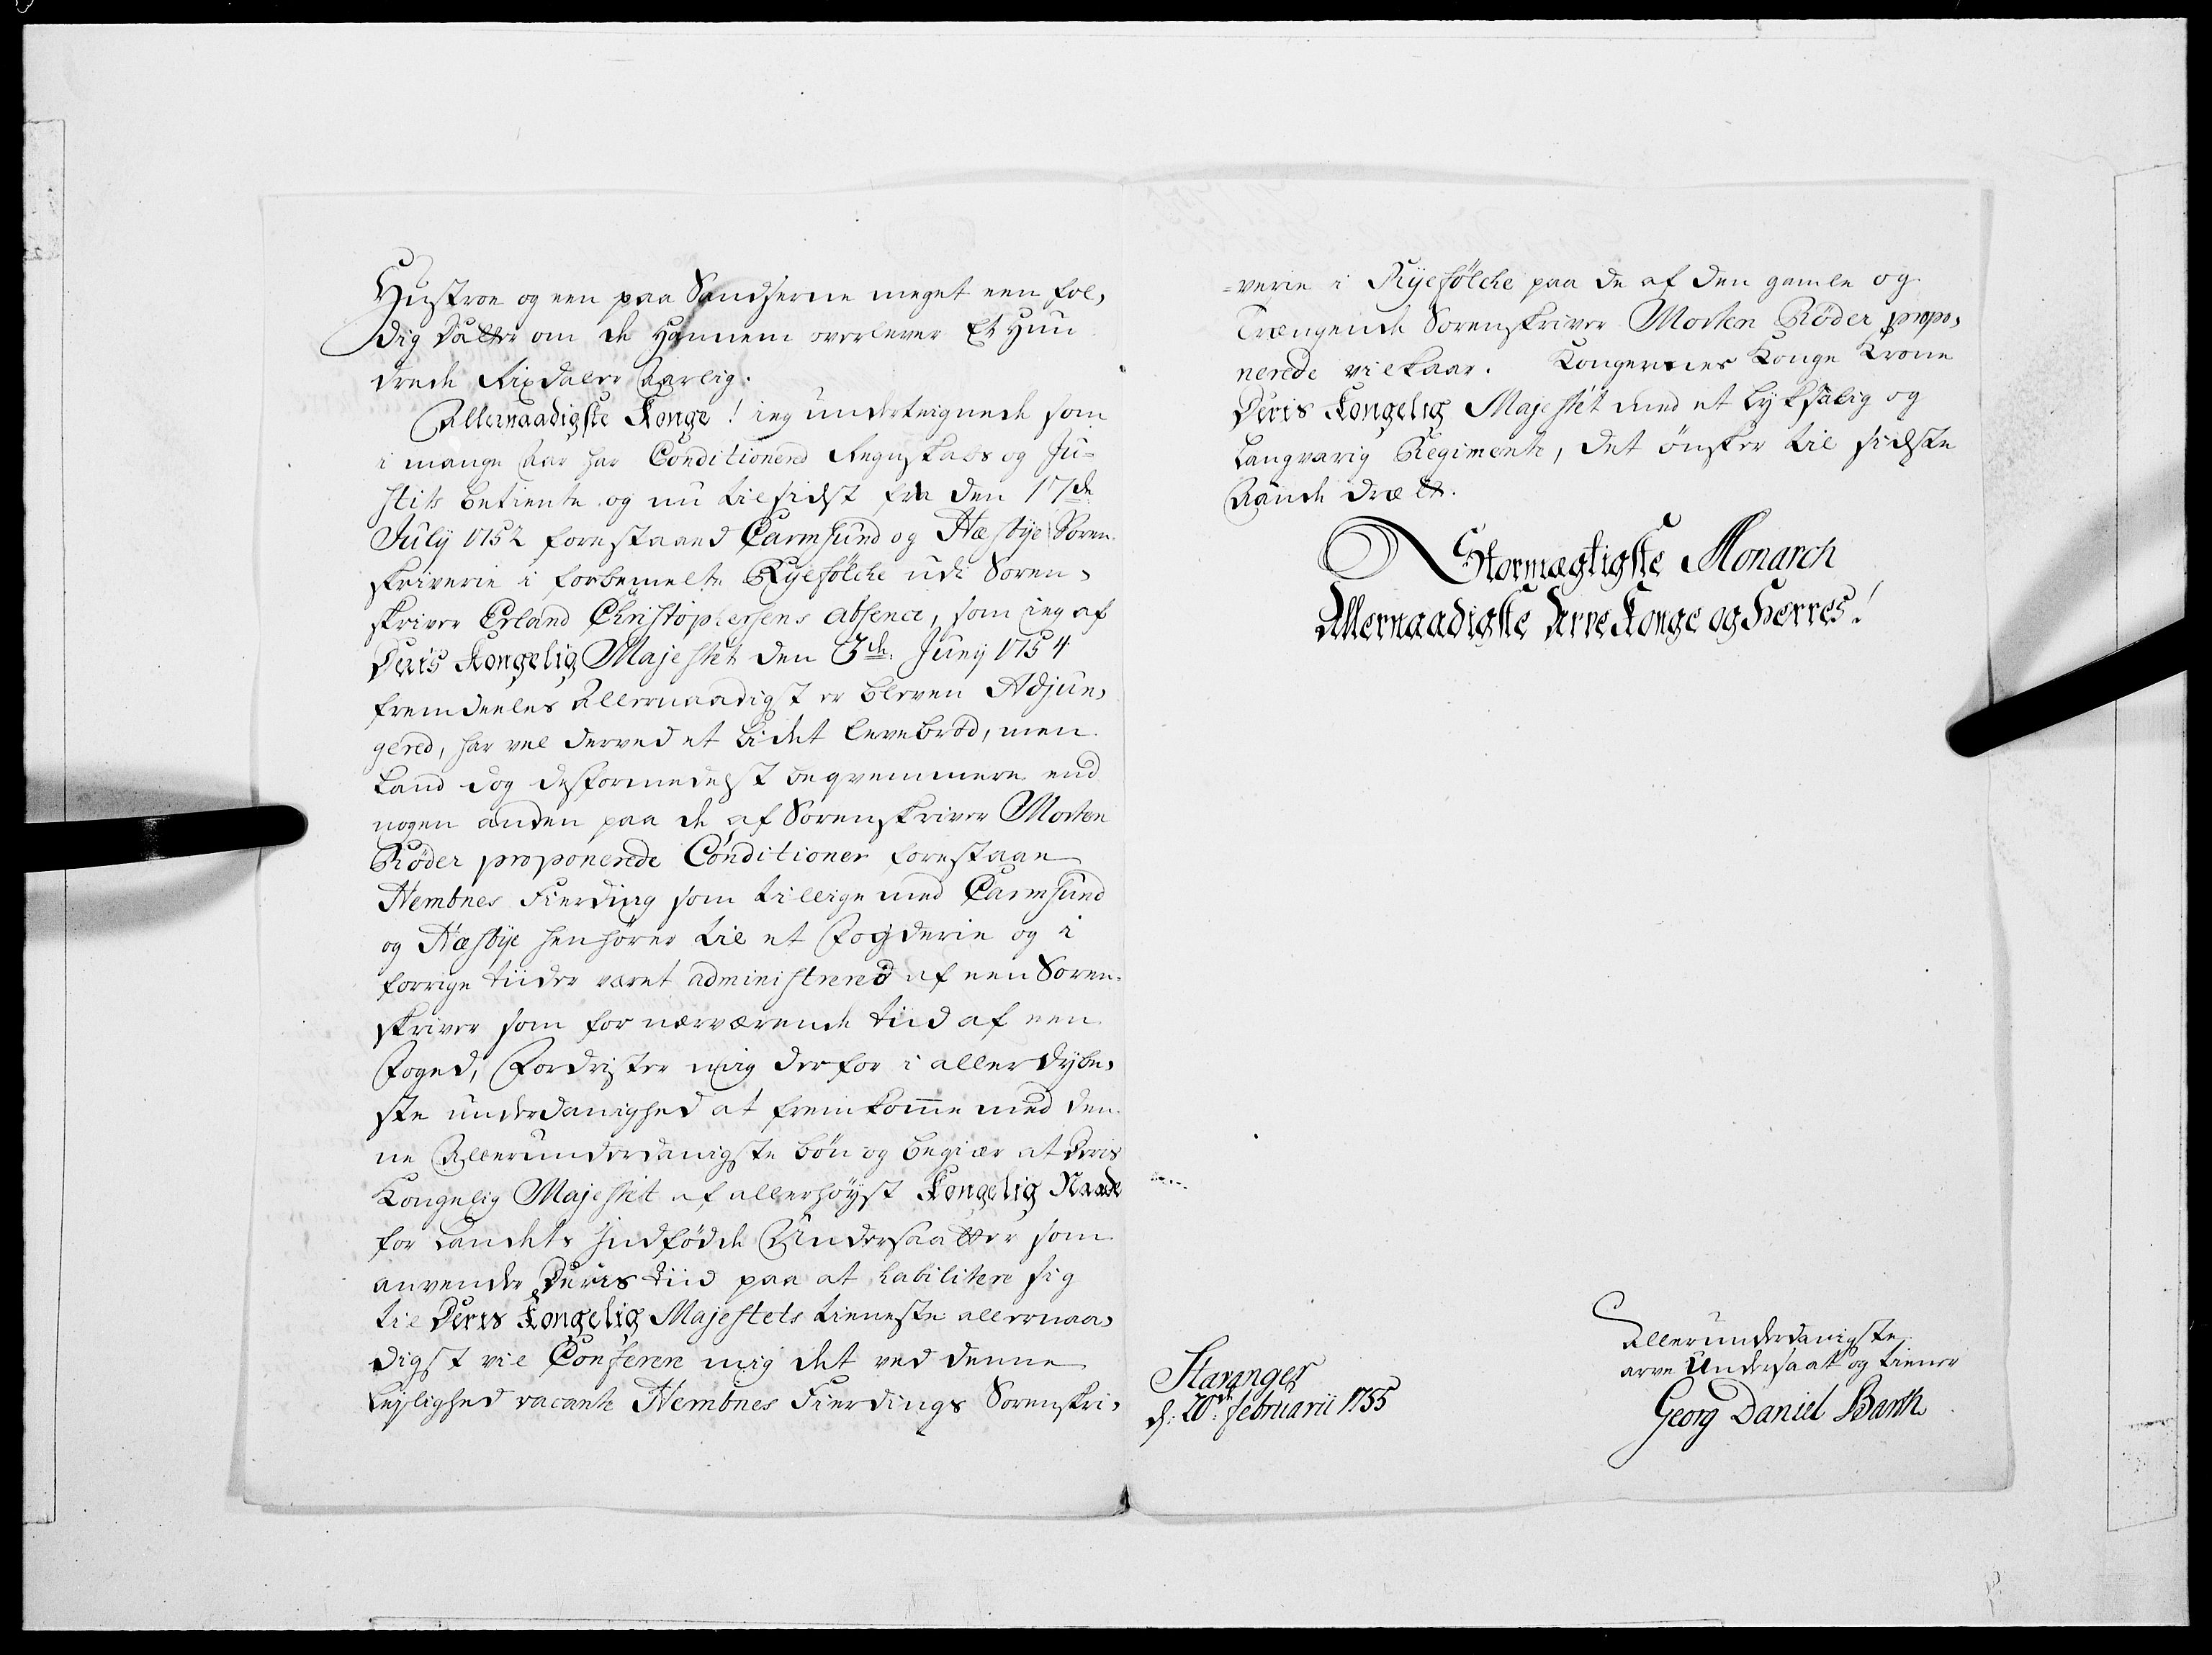 Hustroe og een paa Sandserne meget een fol,
dig Datter om de Hannem overlever Et Hun
drede Rixdaler Aarlig.
Allernaadigste Konge! ieg underteignede som
i mange Aar har Conditionered Regnskabs og Ju-
stits betiente og nu tilsidst fra den 17de
July 1752 forestaaed Carmsund og Hæsbye Soren
skriverie i forbemelte Ryefölche udi Soren,
skriver Erland Christophersens absence, som ieg af
Deris Kongelig Majestet den 3de Juny 1754
fremdeeles Allernaadigst er bleven Adjun,
gered, har vel derved et lidet levebrød, men
kand dog desformedelst beqvemmere end
nogen anden paa de af Sorenskriver Morten
Röder proponerede Conditioner forestaae
Nembnes Fierding som tillige med Carmsund
og Hæsbye henhører til et Fogderie og i
forrige tiider været administrered af een Soren,
skriver som for nærværende tiid af een
Foged, Fordrister mig derfor i aller dybe,
ste underdanighed at fremkomme med den
ne Allerunderdanigste bøn og begiær at Deris
Kongelig Majestet af allerhøyst Kongelig Naade
for Landets Indfødde Undersaatter som
anvender Deris tiid paa at habilitere sig
til Deris Kongelig Majestets tieneste allernaa,
digst vil Conferere mig det ved denne
Leylighed vacante Nembnes Fierdings Sorenskri,
-verie i Ryefölche paa de af den gamle og
Trængende Sorenskriver Morten Röder propo,
nerede vilkaar. Kongernes Konge Krone
Deris Kongelig Majestet med et lyksalig og
Langvarig Regimente, det ønsker til sidste
Aande dræt.
Stormægtigste Monarch
Allernaadigste Arve Konge og Herres!
Stavanger
d: 20de februarii 1755
Allerunderdanigste
arve Undersaat og tiener
Georg Daniel Barth